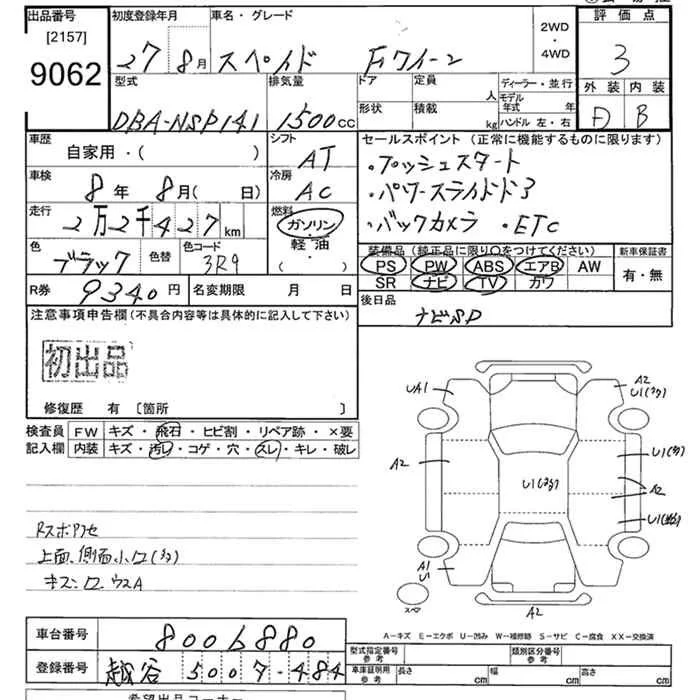 出品番号
[2157]
9062
初度登録年月
27 8月
車名・グレード
スペイド Fクイーン
2WD
・
4WD
評価点
3
外装 内装
D B
型式
DBA-NSP141
排気量
1500cc
ドア
定員
人
形状
積載
kg
ディーラー・並行
モデル
年式 年
ハンドル 左・右
車歴
自家用・( )
シフト
AT
セールスポイント (正常に機能するものに限ります)
・プッシュスタート
・パワースライドドア
・バックカメラ ・ETC
車検
8年 8月( 日)
冷房
AC
走行
2万2千427km
燃料
ガソリン
軽油
・( )
色
ブラック
色替
色コード
3R9
装備品 (純正品に限り〇をつけてください)
PS PW ABS エアB AW
SR ナビ TV カワ
新車保証書
有・無
R券
9340円
名変期限 月 日
後日品
ナビSD
注意事項申告欄 (不具合内容等は具体的に記入して下さい)
初出品
修復歴 有 〔箇所 〕
検査員 FW キズ・飛石・ヒビ割・リペア跡・×要
記入欄 内装 キズ・汚レ・コゲ・穴・スレ・キレ・破レ
上面、側面小
UA1
A2
U1
A2
A2
A1
U
A2
スペ
A-キズ E-エクボ U-凹み W-補修跡 S-サビ C-腐食 XX-交換済
車台番号
8006880
登録番号
越谷 500 7-484
型式指定番号
参考
類別区分番号
参考
車庫証明用
参考
長さ cm
幅 cm
高さ cm
希望出品コーナー